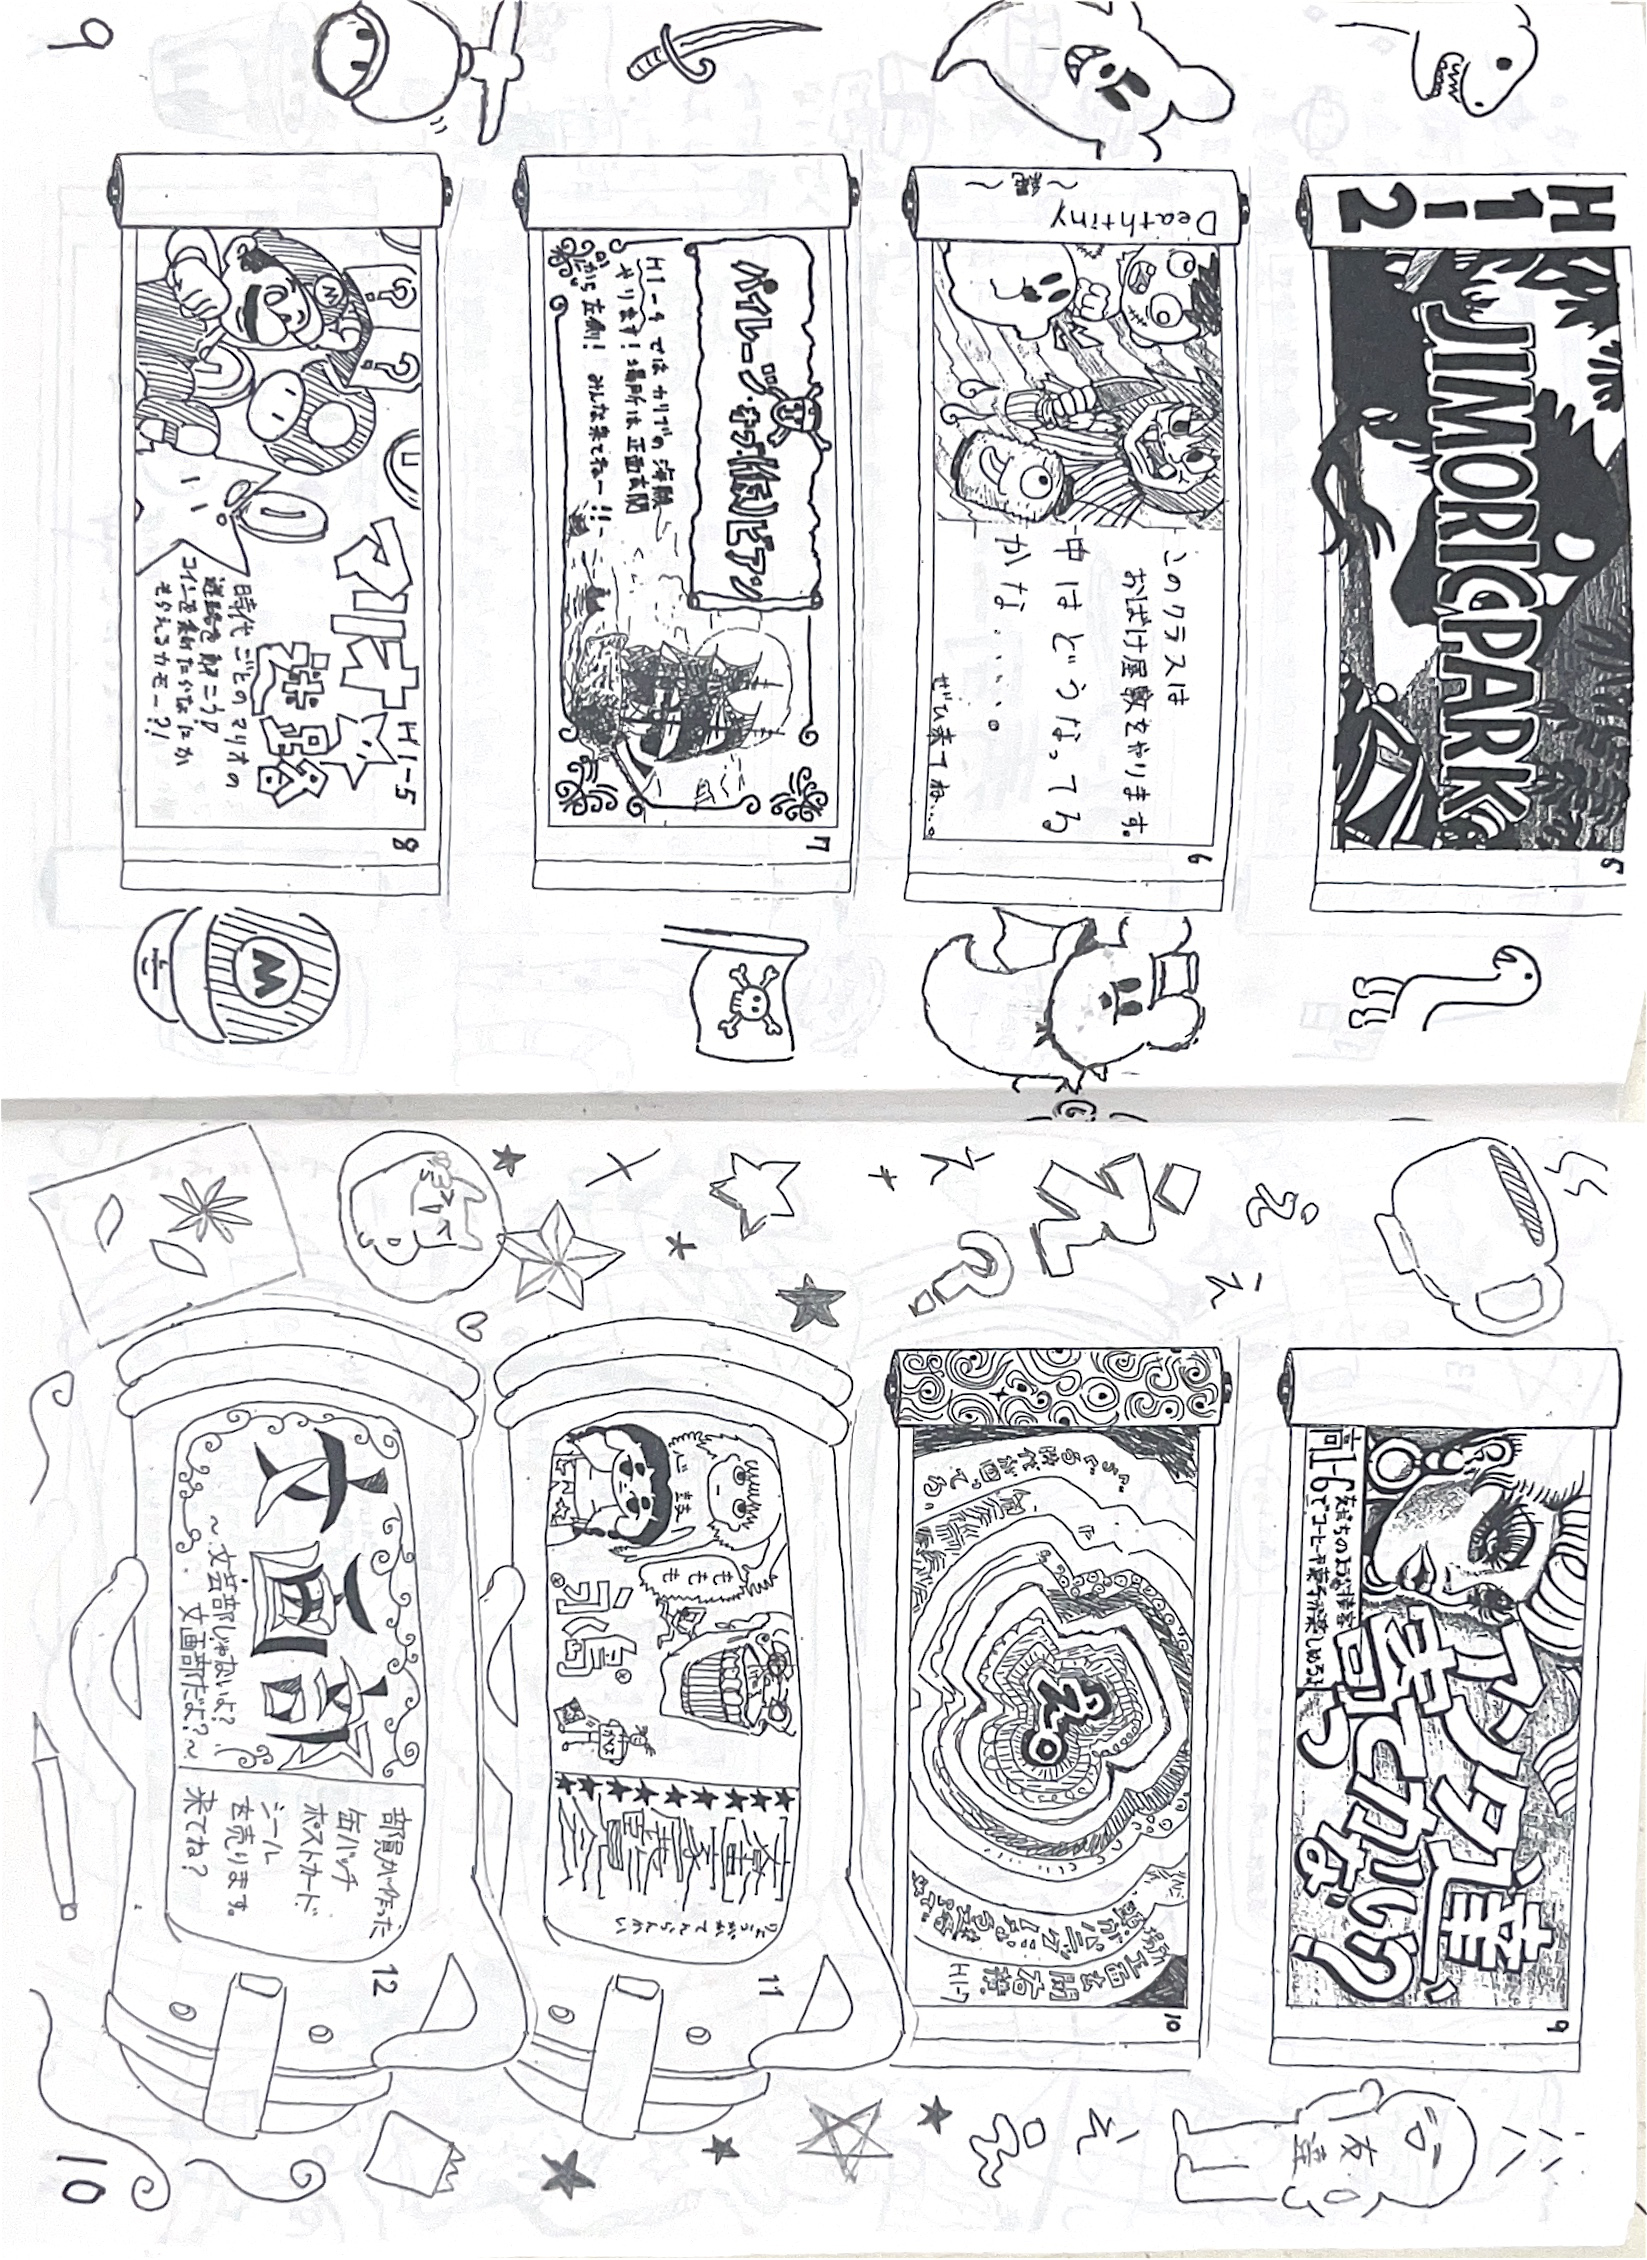 H1-2
JIMORIC PARK
5
Deathtiny
～縄～
このクラスは
おばけ屋敷をやります。
中はどうなってる
かな.....。
ぜひ来てね...。
6
パイレーツ・オブ・(仮)ビアン
H1-4ではカリブの海賊
やります！場所は正面玄関
から左側！ みんな来てねー!!
7
マリオ
H1-5
迷路
時代ごとのマリオの
迷路を解こう!
コインを集めたらなにか
もらえるカモー?!
8
M
M
9
アンタ達、
寄ってかない?
高1-6
友だちのような接客
でコーヒーや菓子が楽しめるよ
9
ハハ
ハ
友達
え
え
え?
え
え
え
え。
場所正面玄関右横、H1-7
頭がパニックになる迷路って、
ぐるぐる時代が回ってる。
10
ももも
心 鼓
永島
りょうがかてんらんかい
展覧会
11
文画部
～文芸部じゃないよ？
文画部だよ？～
部員が作った
缶バッチ
ポストカード
シール
を売ります。
来てね？
12
10